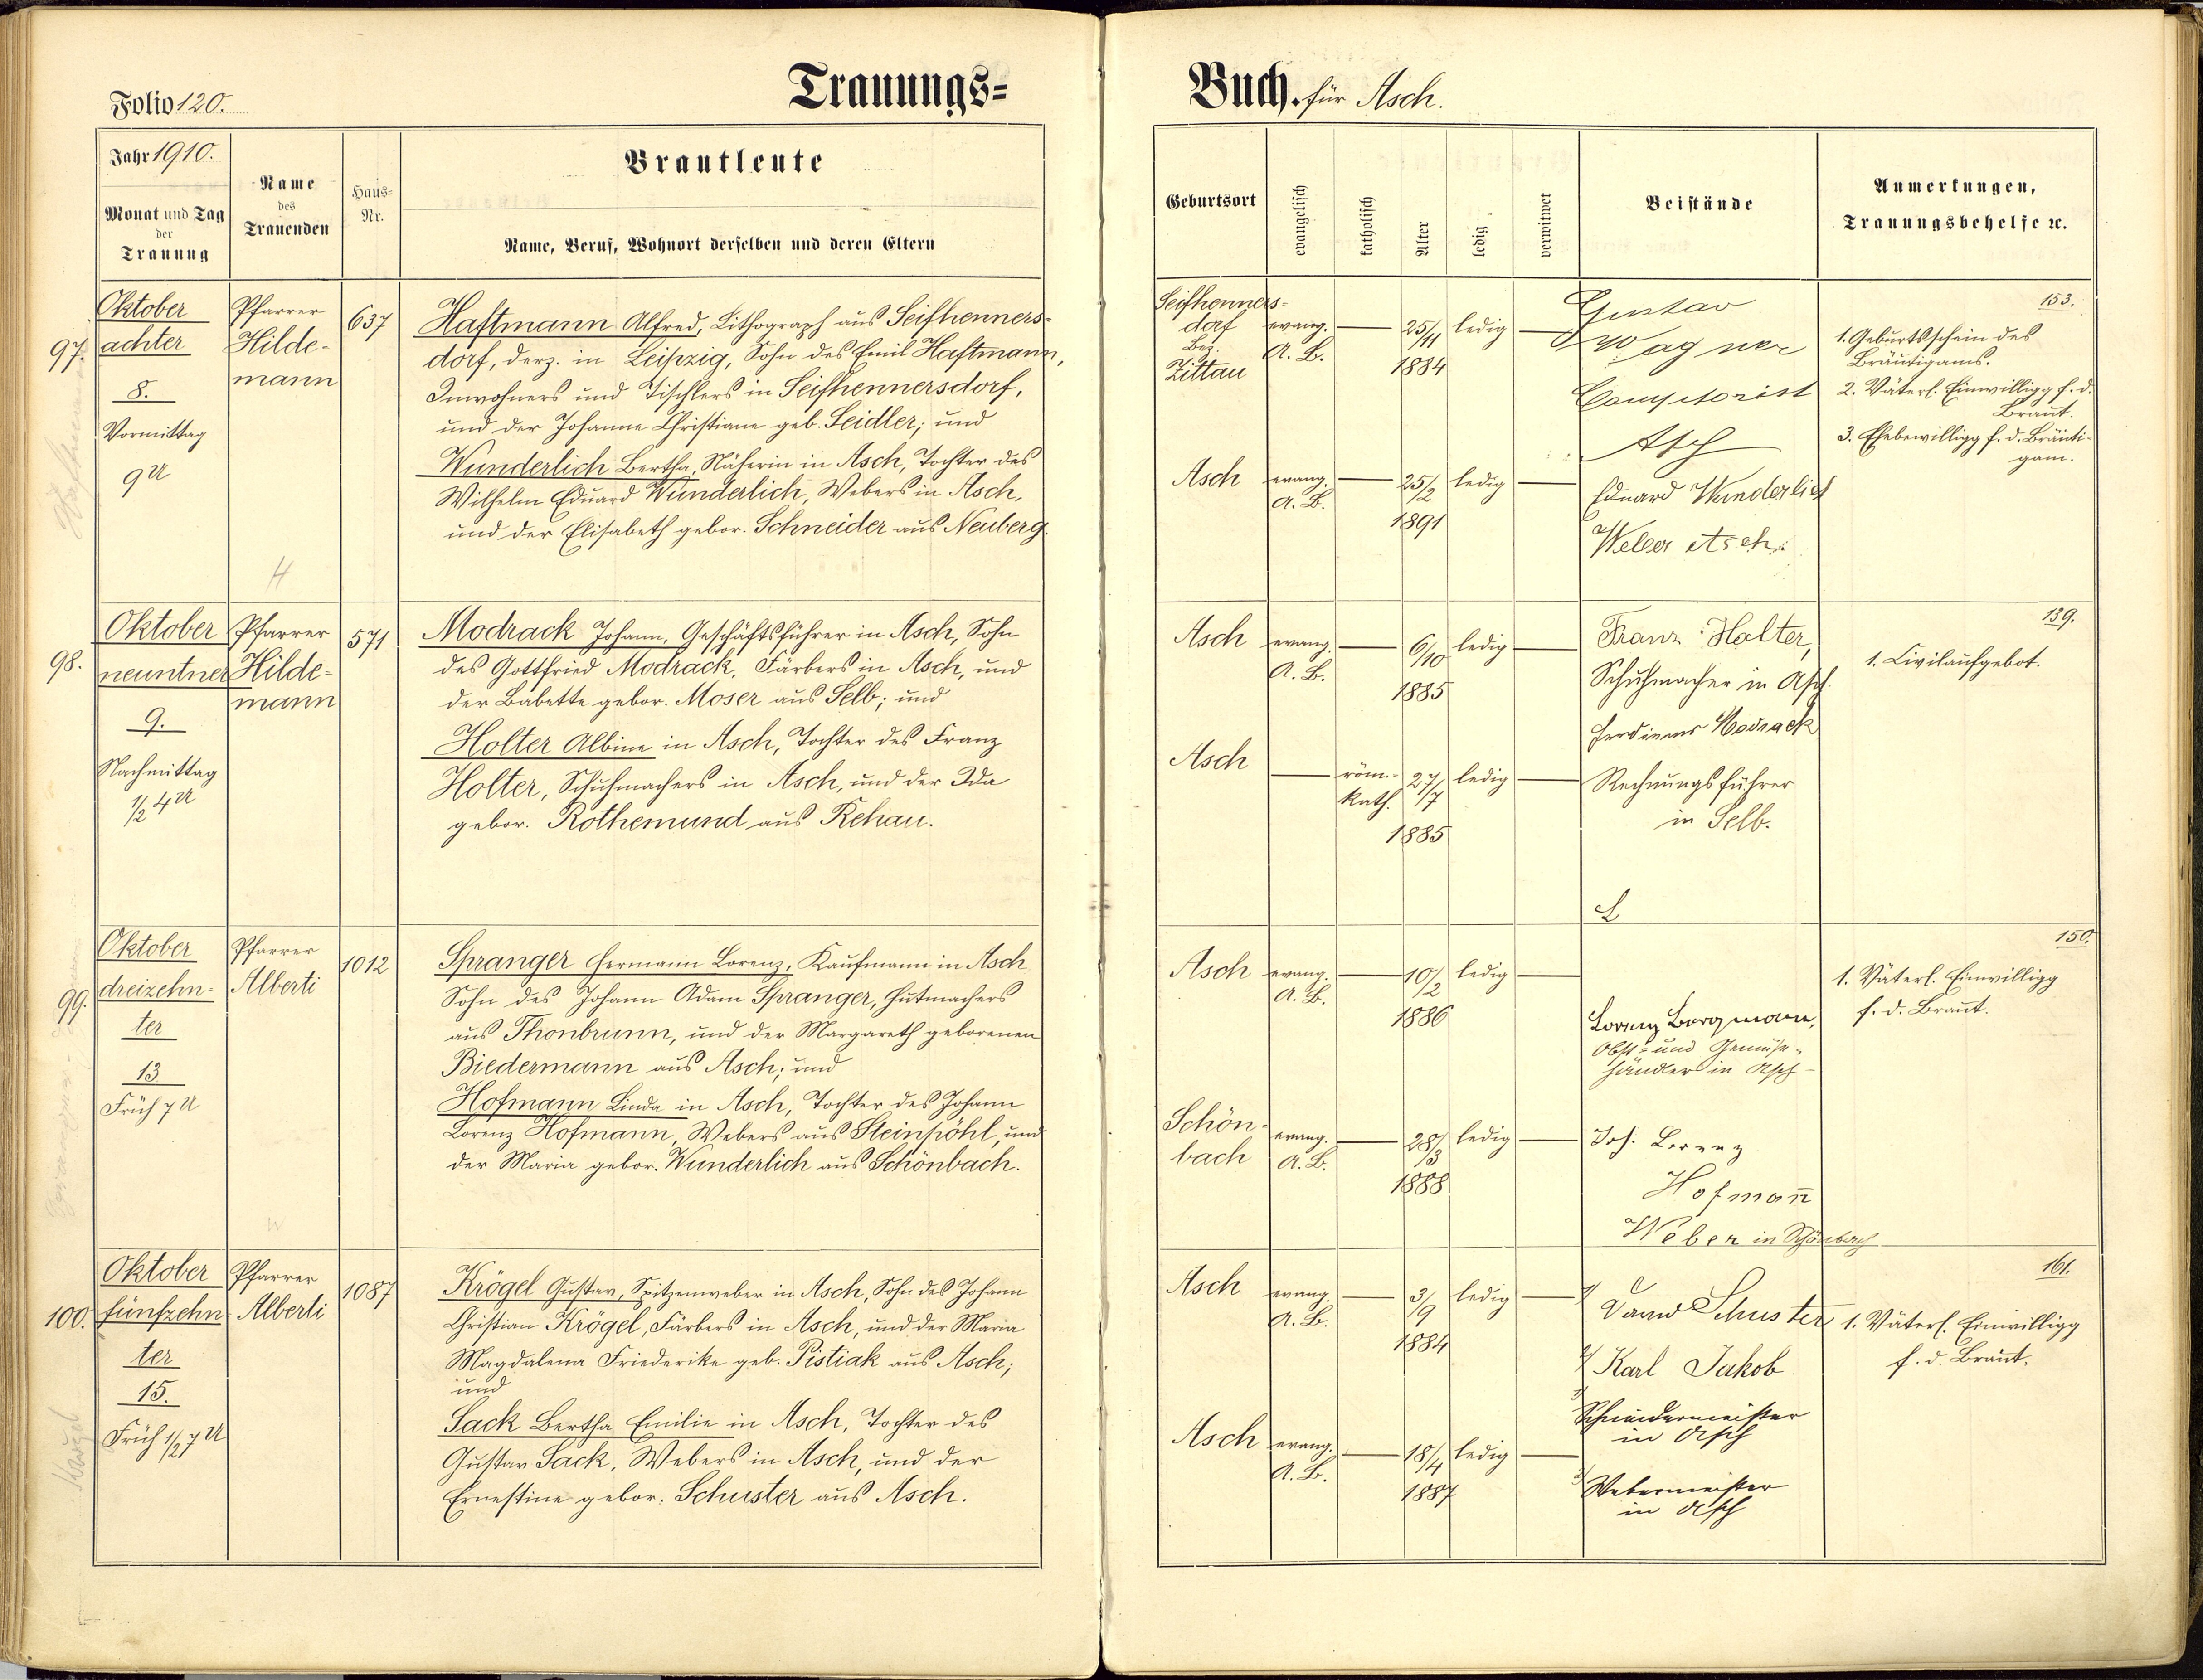 Folio 120.
Trauungs=
Jahr 1910.
Monat und Tag
der
Trauung
Name
des
Trauenden
Haus=
Nr.
Brautleute
Name, Beruf, Wohnort derselben und deren Eltern
97.
Oktober
achter
8.
Vormittag
9 U
Pfarrer
Hilde-
mann
637
Haftmann Alfred, Lithograph aus Seifhenners-
dorf, derz. in Leipzig, Sohn des Emil Haftmann,
Inwohners und Tischlers in Seifhennersdorf,
und der Johanne Christiane geb. Seidler; und
Wunderlich Bertha, Näherin in Asch, Tochter des
Wilhelm Eduard Wunderlich, Webers in Asch,
und der Elisabeth gebor. Schneider aus Neuberg.
H
98.
Oktober
neuntner
9.
Nachmittag
1/2 4 U
Pfarrer
Hilde-
mann
571
Modrack Johann, Geschäftsführer in Asch, Sohn
des Gottfried Modrack, Färbers in Asch, und
der Babette gebor. Moser aus Selb; und
Holter Albine in Asch, Tochter des Franz
Holter, Schuhmachers in Asch, und der Ida
gebor. Rothemund aus Rehau.
99.
Oktober
dreizehn-
ter
13
Früh 7 U
Pfarrer
Alberti
1012
Spranger Hermann Lorenz, Kaufmann in Asch
Sohn des Johann Adam Spranger, Hutmachers
aus Thonbrunn, und der Margareth geborenen
Biedermann aus Asch; und
Hofmann Linda in Asch, Tochter des Johann
Lorenz Hofmann, Webers aus Steinpöhl, und
der Maria gebor. Wunderlich aus Schönbach.
100.
Oktober
fünfzehn
ter
15.
Früh 1/2 7 U
Pfarrer
Alberti
1087
Krögel Gustav, Spitzenweber in Asch, Sohn des Johann
Christian Krögel, Färbers in Asch, und der Maria
Magdalena Friederike geb. Pistiak aus Asch;
und
Sack Bertha Emilie in Asch, Tochter des
Gustav Sack, Webers in Asch, und der
Ernestine gebor. Schuster aus Asch.
Buch. für Asch.
Geburtsort
evangelisch
katholisch
Alter
ledig
verwitwet
Beistände
Anmerkungen,
Trauungsbehelfe ꝛc.
Seifhenners-
dorf
Bez.
Zittau
evang.
A. B.
25/11
1884
ledig
Gustav
Wagner
Comptorist
Asch
153.
1. Geburtsschein des
Bräutigams.
2. Väterl. Einwilligg f. d.
Braut.
3. Ehebewilligg f. d. Bräuti-
gam.
Asch
evang.
A. B.
25/2
1891
ledig
Eduard Wunderlich
Weber Asch.
Asch
evang.
A. B.
6/10
1885
ledig
Franz Holter,
Schuhmacher in Asch.
139.
1. Civilaufgebot.
Asch
röm.-
kath.
27/7
1885
ledig
Ferdinand Modrack
Rechnungsführer
in Selb.
Asch
evang.
A. B.
10/2
1886
ledig
Lorenz Bergmann,
Obst- und Gemüse-
händler in Asch
150.
1. Väterl. Einwilligg
f. d. Braut.
Schön-
bach
evang.
A. B.
28/3
1888
ledig
Joh. Lorenz
Hofmañ
Weber in Schönbach
Asch
evang.
A. B.
3/9
1884
ledig
1/ Schuster
2/ Karl Jakob
1/ Schneidermeister
in Asch
161.
1. Väterl. Einwilligg
f. d. Braut.
Asch
evang.
A. B.
18/4
1887
ledig
2/ Webermeister
in Asch